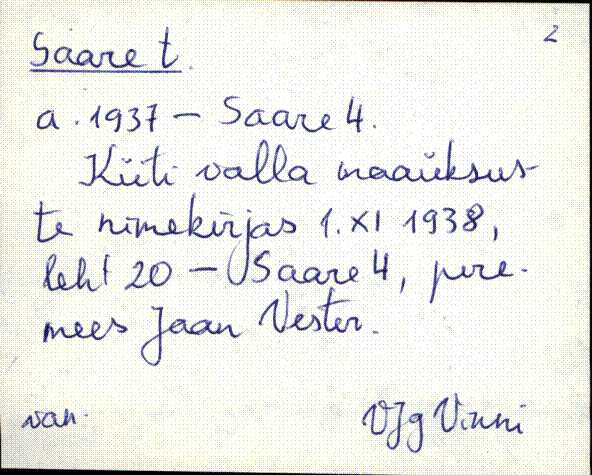 2
Saare t.
a. 1937 – Saare 4.
Küti valla maaüksus-
te nimekirjas 1. XI 1938,
leht 20 – Saare 4, pere-
mees Jaan Vester.
van.
VJg Vinni